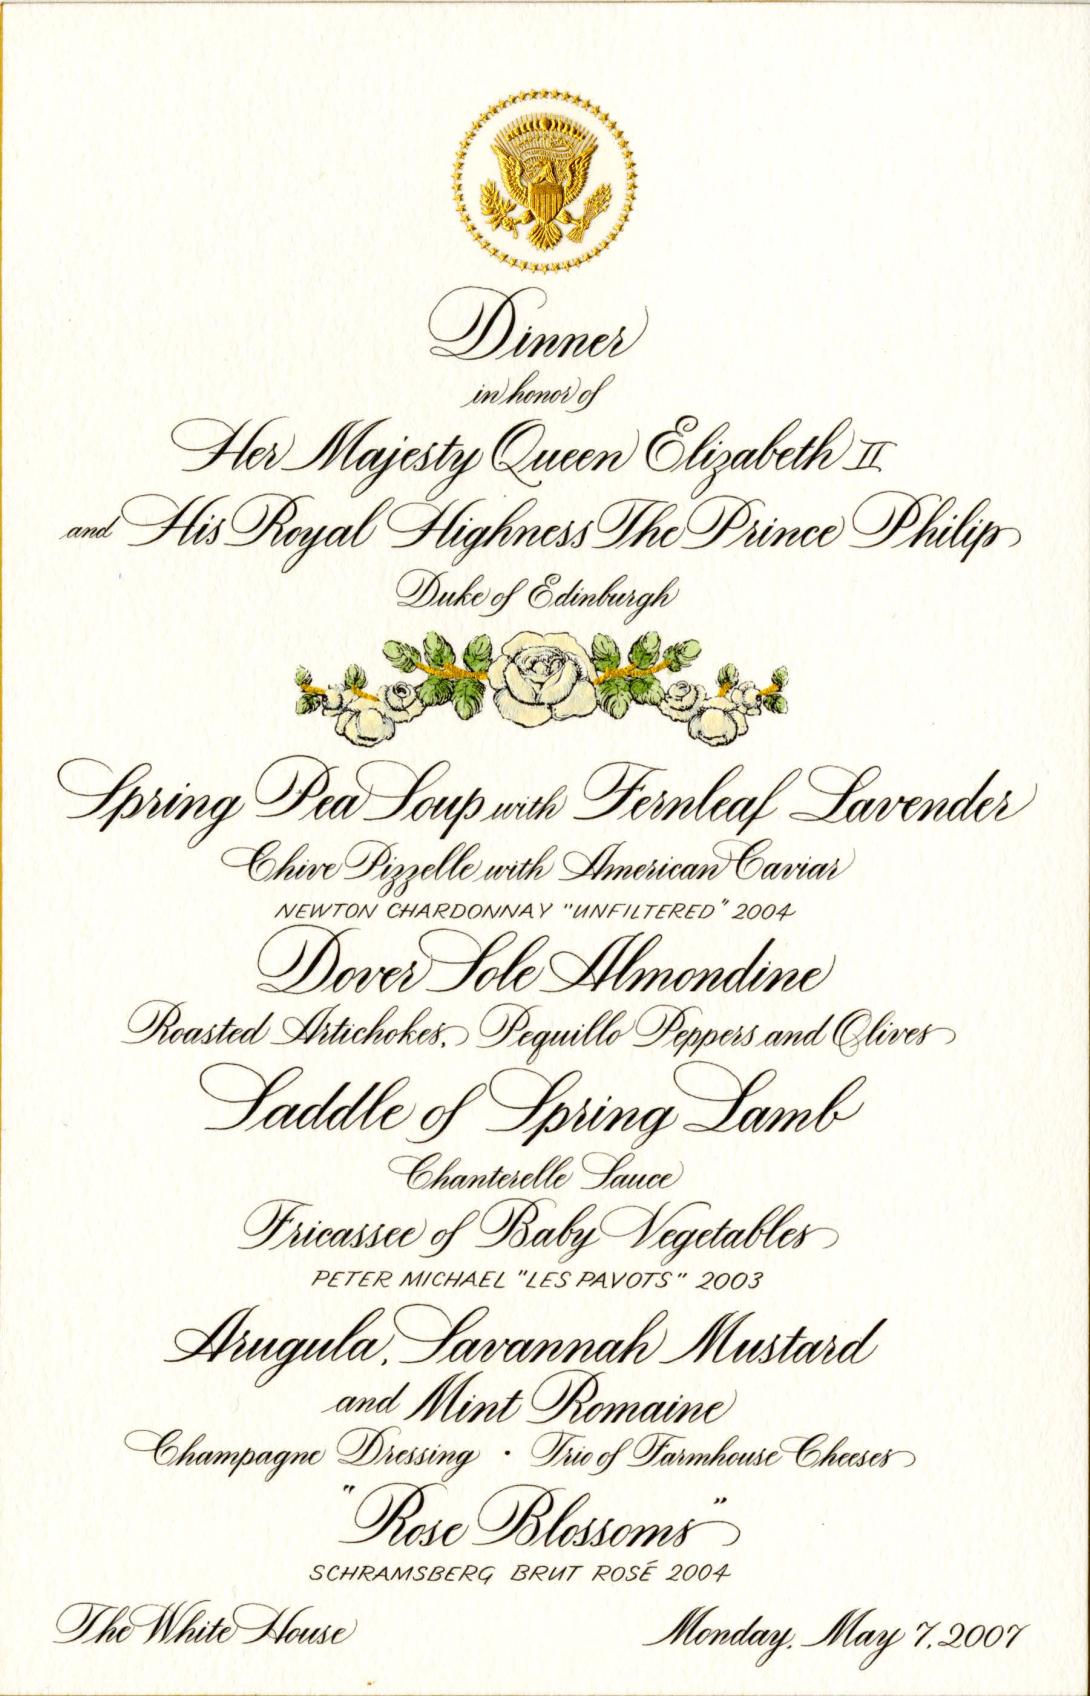 Dinner
in honor of
Her Majesty Queen Elizabeth II
and His Royal Highness The Prince Philip
Duke of Edinburgh
Spring Pea Soup with Fernleaf Lavender
Chive Pizzelle with American Caviar
NEWTON CHARDONNAY "UNFILTERED" 2004
Dover Sole Almondine
Roasted Artichokes, Pequillo Peppers and Olives
Saddle of Spring Lamb
Chanterelle Sauce
Fricassee of Baby Vegetables
PETER MICHAEL "LES PAVOTS" 2003
Arugula, Savannah Mustard
and Mint Romaine
Champagne Dressing · Trio of Farmhouse Cheeses
"Rose Blossoms"
SCHRAMSBERG BRUT ROSÉ 2004
The White House Monday, May 7, 2007